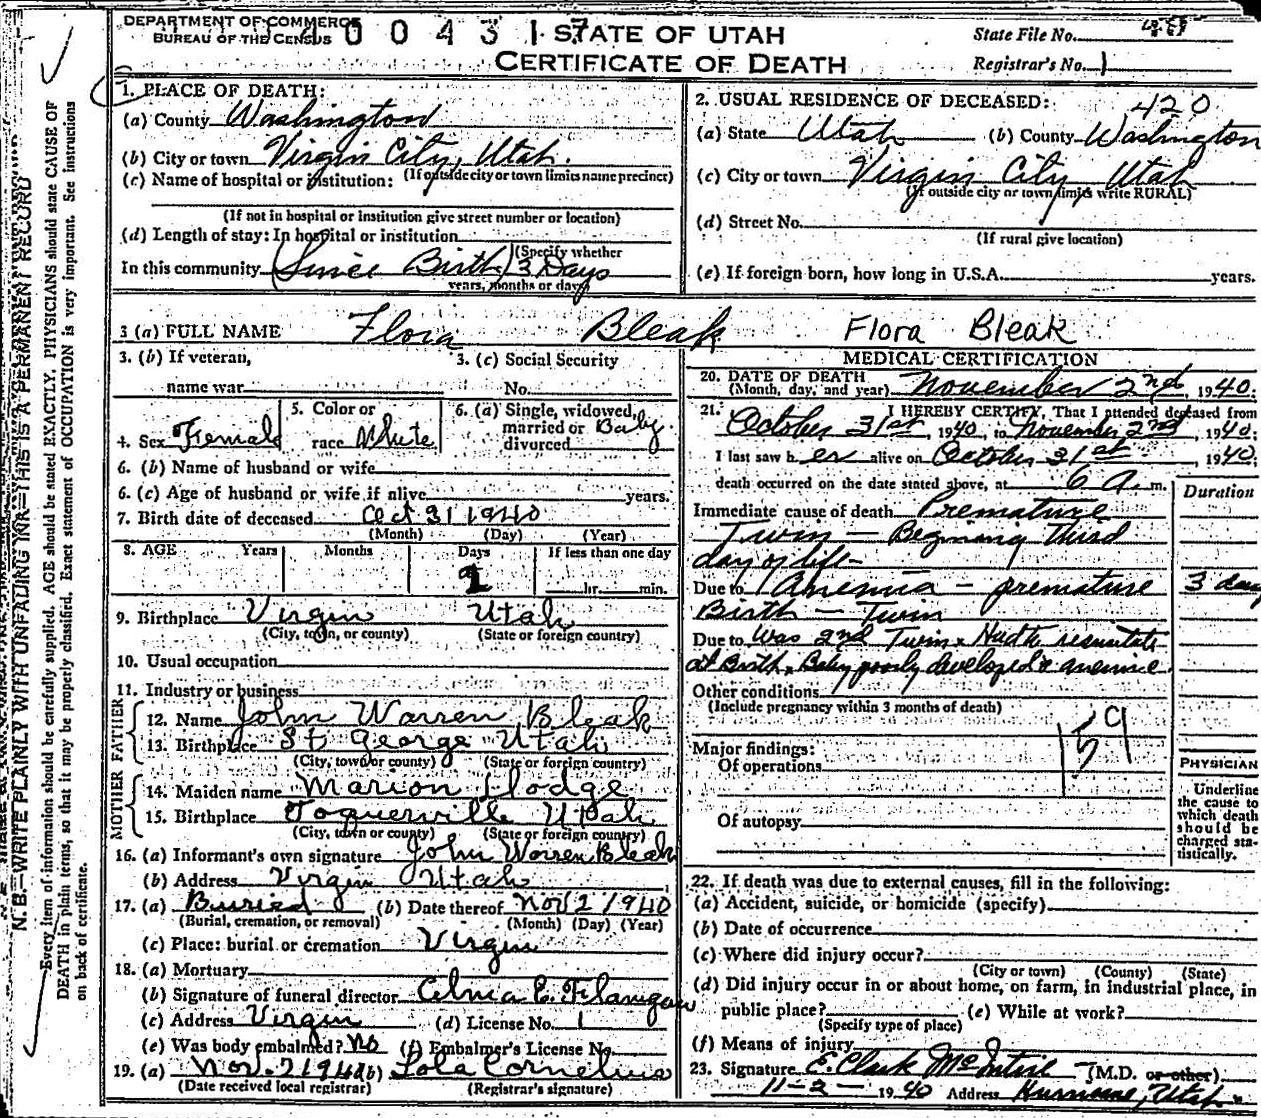 DEPARTMENT OF COMMERCE
BUREAU OF THE CENSUS
4 0 0 4 3 1 7
STATE OF UTAH
CERTIFICATE OF DEATH
State File No.
Registrar's No. 1
N. B.—WRITE PLAINLY WITH UNFADING INK—THIS IS A PERMANENT RECORD
Every item of information should be carefully supplied. AGE should be stated EXACTLY. PHYSICIANS should state CAUSE OF
DEATH in plain terms, so that it may be properly classified. Exact statement of OCCUPATION is very important. See instructions
on back of certificate.
1. PLACE OF DEATH:
(a) County Washington
(b) City or town Virgin City, Utah.
(If outside city or town limits name precinct)
(c) Name of hospital or institution:
(If not in hospital or institution give street number or location)
(d) Length of stay: In hospital or institution
(Specify whether
In this community Since Birth 3 Days
years, months or days)
2. USUAL RESIDENCE OF DECEASED: 420
(a) State Utah (b) County Washington
(c) City or town Virgin City Utah
(If outside city or town limits write RURAL)
(d) Street No.
(If rural give location)
(e) If foreign born, how long in U.S.A. years.
3 (a) FULL NAME Flora Bleak Flora Bleak
3. (b) If veteran,
name war
3. (c) Social Security
No.
4. Sex Female
5. Color or
race White
6. (a) Single, widowed,
married or
divorced Baby
6. (b) Name of husband or wife
6. (c) Age of husband or wife if alive years.
7. Birth date of deceased Oct 31 1940
(Month) (Day) (Year)
8. AGE Years Months Days If less than one day
2 hr. min.
9. Birthplace Virgin Utah
(City, town, or county) (State or foreign country)
10. Usual occupation
11. Industry or business
FATHER
12. Name John Warren Bleak
13. Birthplace St George Utah
(City, town or county) (State or foreign country)
MOTHER
14. Maiden name Marion Hodge
15. Birthplace Toquerville Utah
(City, town or county) (State or foreign country)
16. (a) Informant's own signature John Warren Bleak
(b) Address Virgin Utah
17. (a) Buried (b) Date thereof Nov 2 1940
(Burial, cremation, or removal) (Month) (Day) (Year)
(c) Place: burial or cremation Virgin
18. (a) Mortuary
(b) Signature of funeral director Alma E. Flanigan
(c) Address Virgin (d) License No. 1
(e) Was body embalmed? No (f) Embalmer's License No.
19. (a) Nov. 2 1940 (b) Lola Cornelius
(Date received local registrar) (Registrar's signature)
MEDICAL CERTIFICATION
20. DATE OF DEATH
(Month, day, and year) November 2nd, 1940.
21. I HEREBY CERTIFY, That I attended deceased from
October 31st, 1940, to November 2nd, 1940;
I last saw her alive on October 31st 1940;
death occurred on the date stated above, at 6 A. m.
Duration
Immediate cause of death Premature
Twin — Begining third
day of life—
Due to Anemia — premature 3 days
Birth — Twin
Due to Was 2nd Twin. Had to resusitate
at Birth. Baby poorly developed & anemic.
Other conditions
(Include pregnancy within 3 months of death)
159
Major findings:
Of operations
Of autopsy
PHYSICIAN
Underline
the cause to
which death
should be
charged sta-
tistically.
22. If death was due to external causes, fill in the following:
(a) Accident, suicide, or homicide (specify)
(b) Date of occurrence
(c) Where did injury occur?
(City or town) (County) (State)
(d) Did injury occur in or about home, on farm, in industrial place, in
public place? (e) While at work?
(Specify type of place)
(f) Means of injury
23. Signature E. Clark McIntire (M.D. or other)
11—2— 1940 Address Hurricane, Utah.